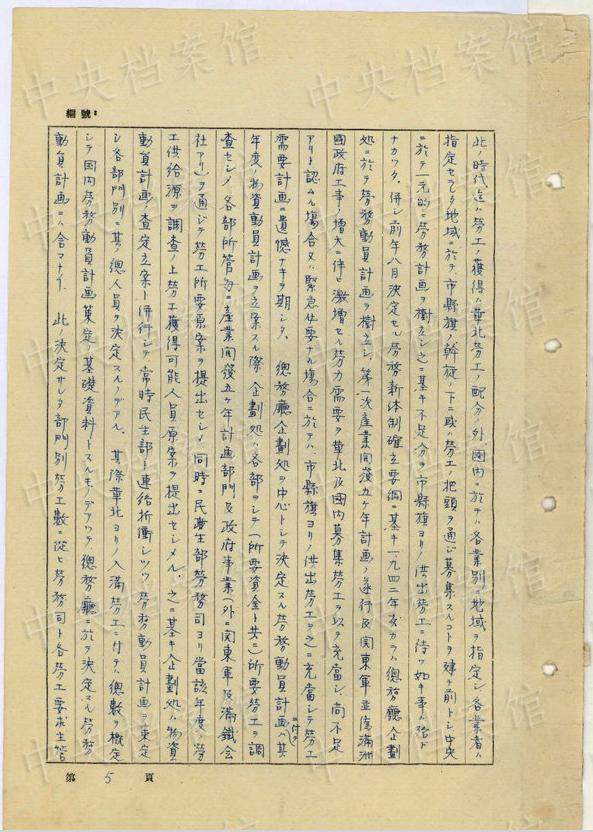 編號：
此ノ時代迄ハ勞工ノ獲得ハ華北勞工ノ配分ノ外國内ニ於テハ各業別ニ地域ヲ指定シ各業者ハ
指定セラレタ地域ニ於テ市縣旗ノ斡旋ノ下ニ或ハ勞工ノ把頭ヲ通シ募集スルコトヲ建テ前トシ中央
ニ於テ一元的ニ勞務計画ヲ樹立シ之ニ基キ不足分ヲ市縣旗ヨリノ供出勞工ニ待ツ如キ事ハ殆ド
ナカツタ。併シ前年八月決定セル勞務新体制確立要綱ニ基キ一九四二年度カラハ總務廳企劃
処ニ於テ勞務動員計画ヲ樹立シ、第一次産業開發五ケ年計画ノ遂行及関東軍並偽滿洲
國政府工事ノ増大ニ伴ヒ激増セル勞力需要ヲ華北及國内募集勞工ヲ以テ充當シ、尚不足
アリト認ムル場合又ハ緊急必要ナル場合ニ於テハ市縣旗ヨリノ供出勞工ヲ之ニ充當シテ勞工
需要計画ニ遺憾ナキヲ期シタ。 總務廳企劃処ヲ中心トシテ決定スル勞務動員計画ニ付テハ其
年度ノ物資動員計画ヲ立案スル際、企劃処ハ各部ヲシテ(所要資金ト共ニ)所要勞工ヲ調
査セシメ、各部所管毎ニ産業開發五ケ年計画部門及政府事業(外ニ関東軍及滿鐵会
社アリ)ヲ通シテ勞工所要原案ヲ提出セシメ、同時ニ民生部勞務司ヨリ當該年度ノ勞
工供給源ヲ調査ノ上勞工獲得可能人員原案ヲ提出セシメル。之ニ基キ企劃処ハ物資
動員計画ノ査定立案ト併行シテ常時民生部ト連絡折衝シツツ勞務動員計画ヲ査定
シ各部門別ニ其ノ總人員ヲ決定スルノデアル。 其際華北ヨリノ入滿勞工ニ付テハ總數ヲ概定
シテ国内勞務動員計画策定ノ基礎資料トスルモノデアツテ、總務廳ニ於テ決定スル勞務
動員計画ニハ含マナイ。 此ノ決定サレタ部門別勞工數ニ從ヒ勞務司ト各勞工要求主管
第 5 頁
中央档案馆